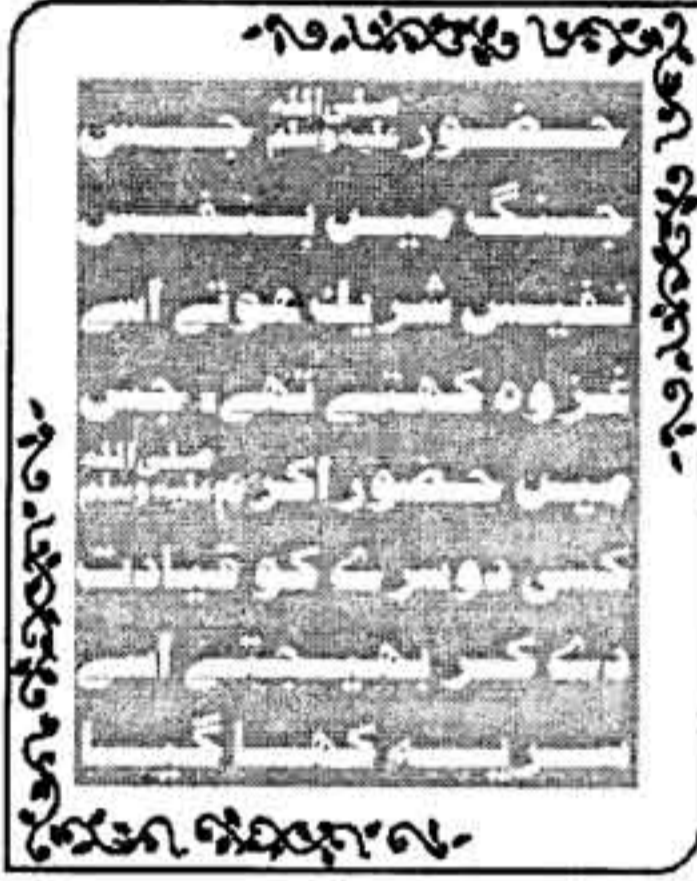 حضور صلی اللہ علیہ وسلم جس
جنگ میں بنفس
نفیس شریک ہوتے اسے
غزوہ کہتے تھے۔ جس
میں حضور اکرم صلی اللہ علیہ وسلم
کسی دوسرے کو قیادت
دے کر بھیجتے اسے
سریہ کہا گیا